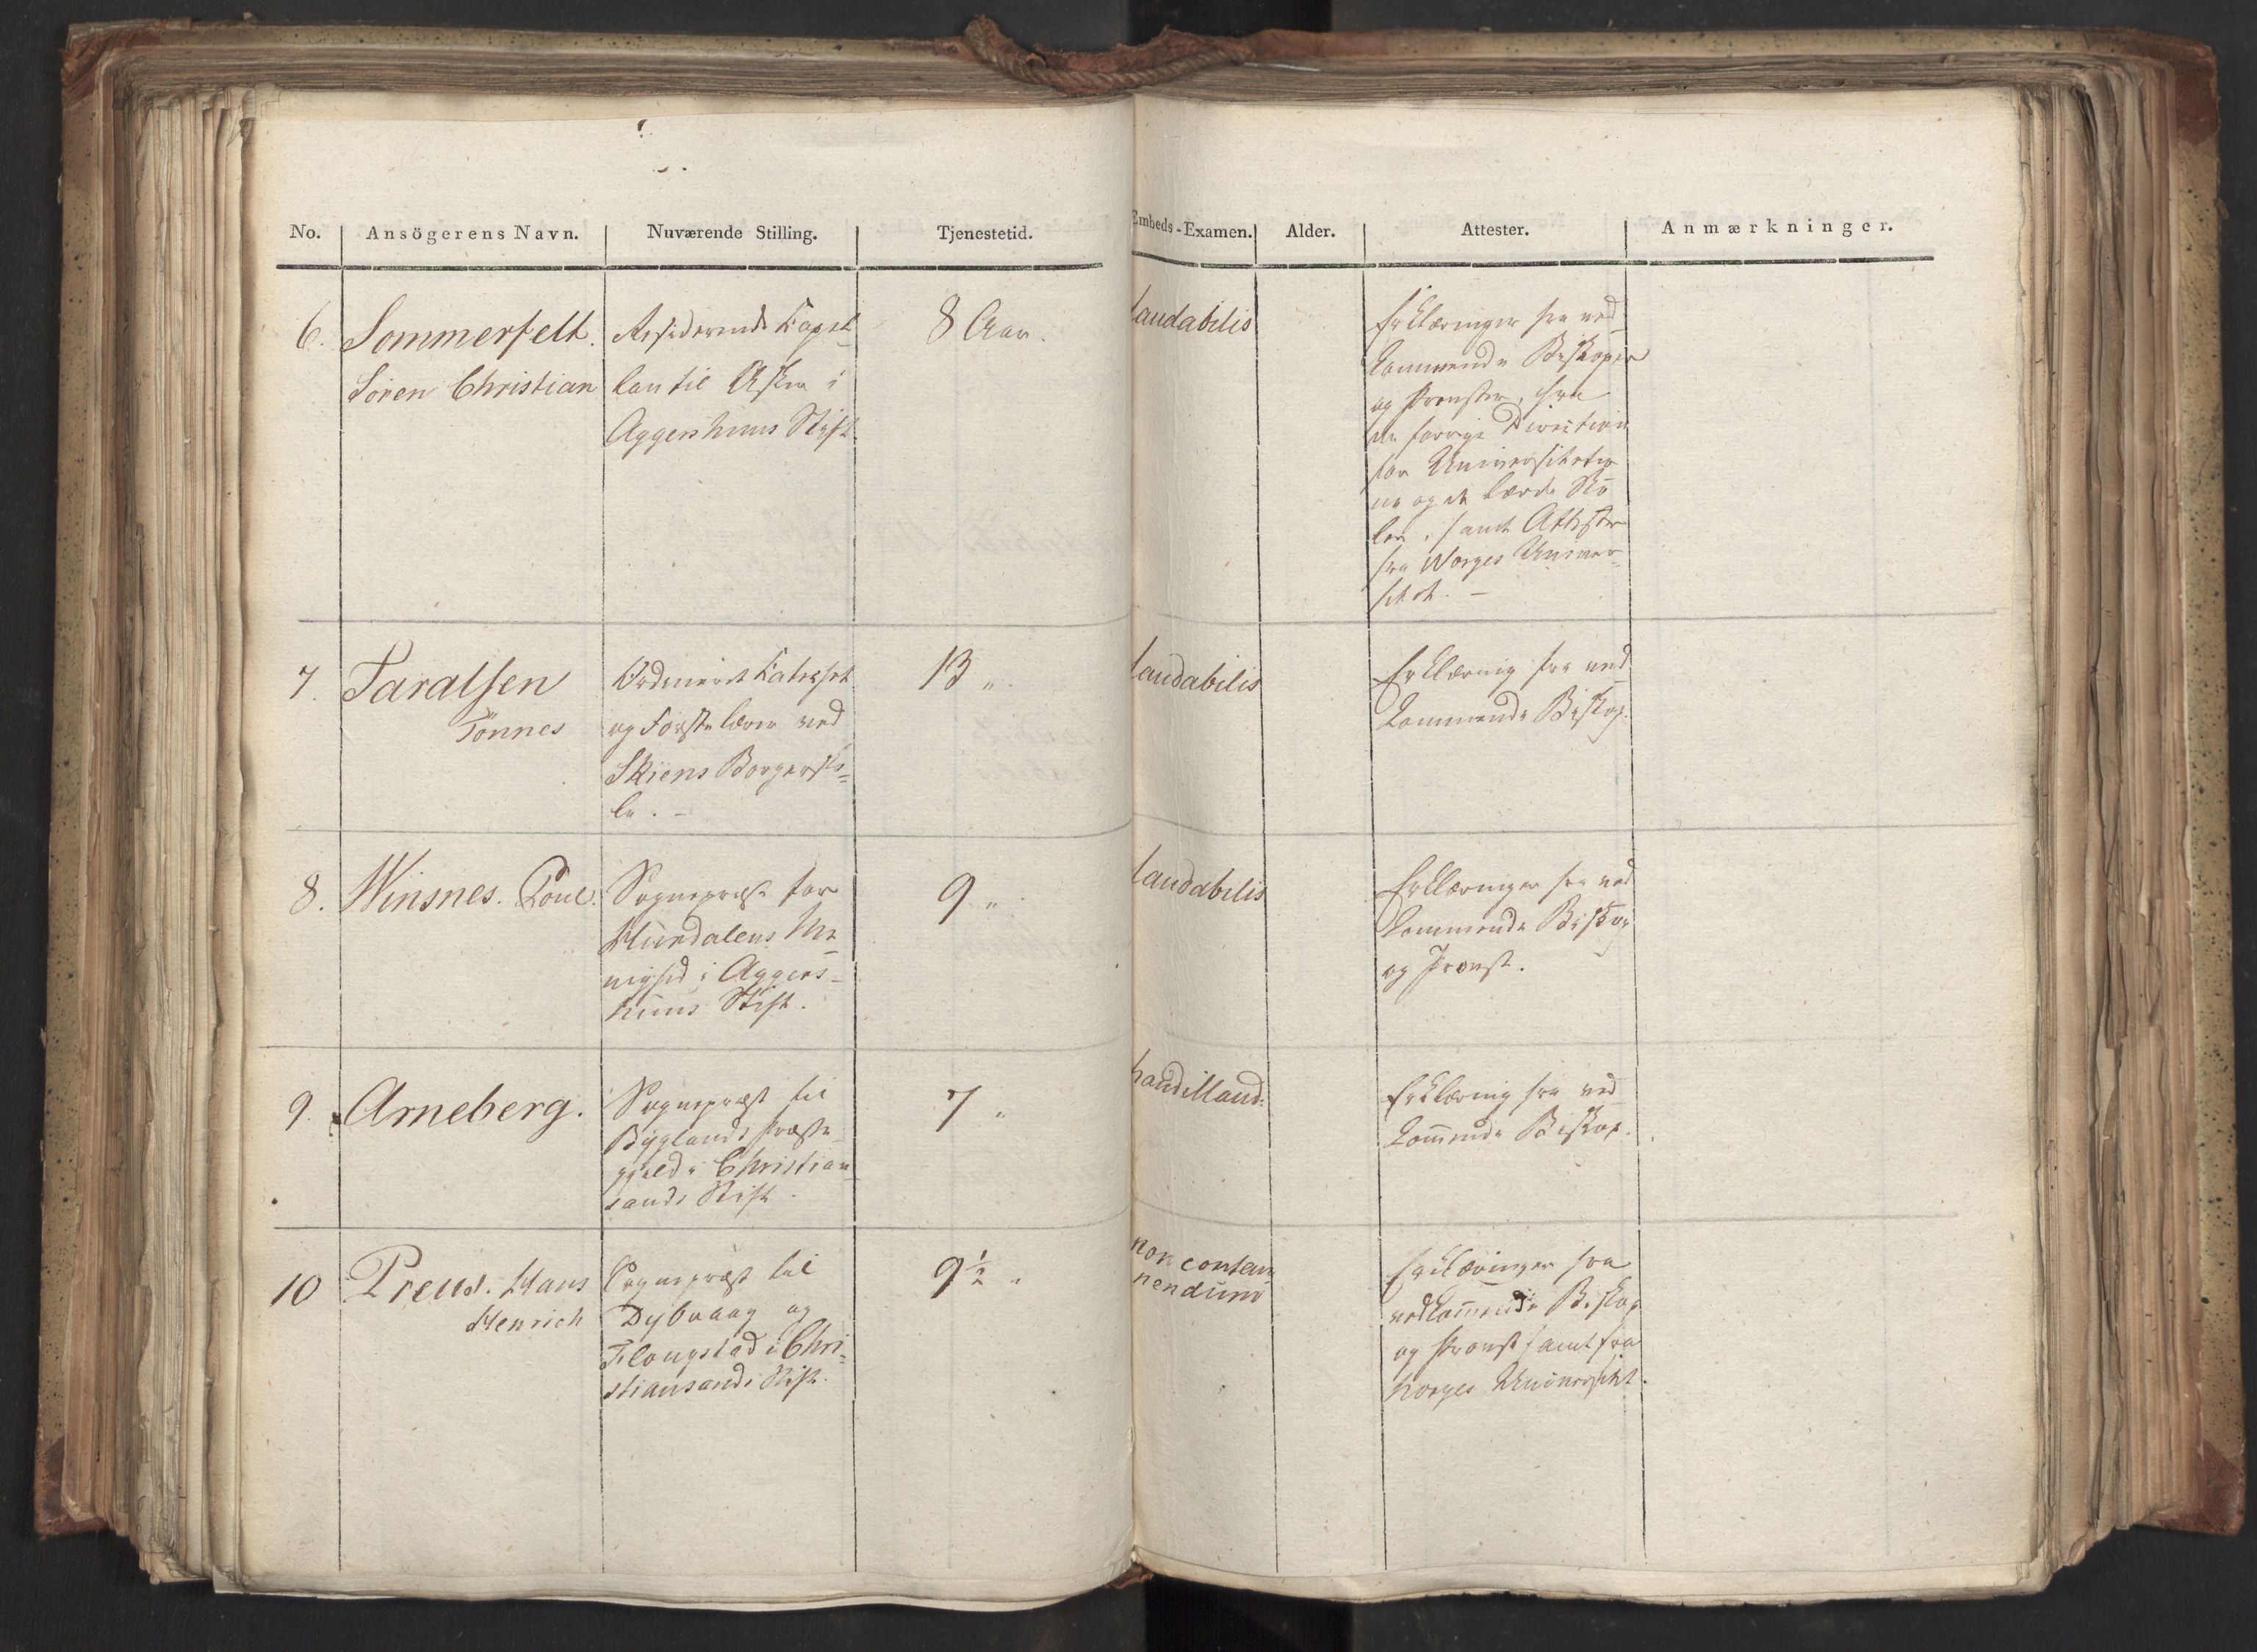 No. Ansögerens Navn. Nuværende Stilling. Tjenestetid. Embeds-Examen. Alder. Attester. Anmærkninger.
6. Sommerfelt.
Sören Christian
Residerende Capel
lan til Asker i
Aggershuus Stift
8 Aar.
laudabilis
Erklæringer fra ved
kommende Biskoper
og Provster, fra
den forrige Direction
for Universitetet
og de lærde Sko
ler, samt Attester
fra Norges Univer
sitet. –
7. Taralsen
Tönnes
Ordineret Catechet
og Förstelærer ved
Skiens Borgersko=
le. –
13 "
laudabilis
Erklæring fra ved
kommende Biskop.
8. Winsnes. Poul.
Sognepræst for
Hurdalens Me
nighed i Aggers-
huus Stift.
9 "
laudabilis
Erklæringer fra ved
kommende Biskop
og Provst.
9. Arneberg.
Sognepræst til
Byglands Præste
gjeld i Christian
sands Stift.
7 "
haud illaud:
Erklæring fra ved
kommende Biskop.
10 Preus. Hans
Henrich
Sognepræst til
Dybvaag og
Flougstad i Chri-
stiansands Stift.
9½ "
non contem
nendum
Erklæringer fra
vedkommende Biskop
og Provst samt fra
Norges Universitet.